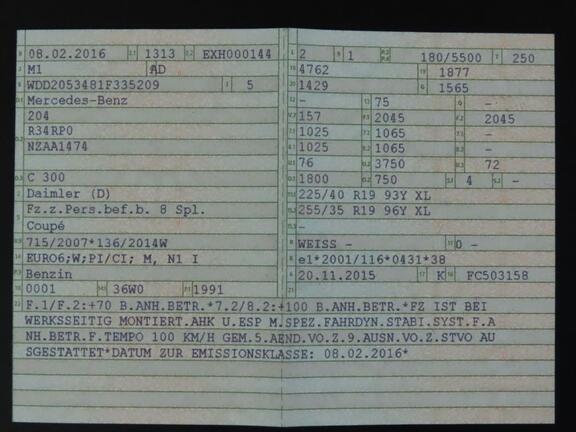 08.02.2016 1313 EXH000144
M1 AD
WDD2053481F335209 5
Mercedes-Benz
204
R34RP0
NZAA1474
C 300
Daimler (D)
Fz.z.Pers.bef.b. 8 Spl.
Coupé
715/2007*136/2014W
EURO6;W;PI/CI; M, N1 I
Benzin
0001 36W0 1991
2 1 180/5500 250
4762 1877
1429 1565
- 75 -
157 2045 2045
1025 1065 -
1025 1065 -
76 3750 72
1800 750 4 -
225/40 R19 93Y XL
255/35 R19 96Y XL
-
WEISS - 0 -
e1*2001/116*0431*38
20.11.2015 K FC503158
F.1/F.2:+70 B.ANH.BETR.*7.2/8.2:+100 B.ANH.BETR.*FZ IST BEI
WERKSSEITIG MONTIERT.AHK U.ESP M.SPEZ.FAHRDYN.STABI.SYST.F.A
NH.BETR.F.TEMPO 100 KM/H GEM.5.AEND.VO.Z.9.AUSN.VO.Z.STVO AU
SGESTATTET*DATUM ZUR EMISSIONSKLASSE: 08.02.2016*